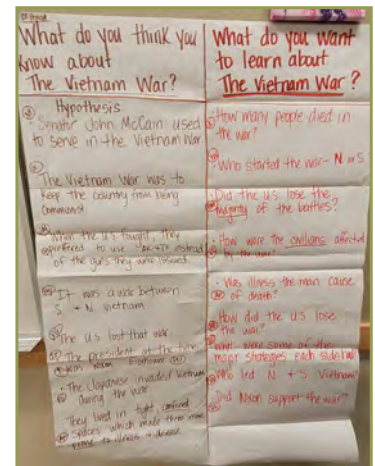 What do you think you
know about
The Vietnam War?
Hypothesis
· Senator John McCain used
to serve in the Vietnam War
· The Vietnam War was to
keep the country from being
communist
· When the U.S. fought, they
preferred to use "AK-47s instead
of the guns they were issued
· It was a war between
S + N Vietnam
· The U.S lost that war
· The president at the time
was
· The Japanese invaded Vietnam
during the war
· They lived in tight confined
spaces which made them more
prone to illness + disease
What do you want
to learn about
The Vietnam War?
· How many people died in
the war?
· Who started the war- N or S
· Did the U.S. lose the
majority of the battles?
· How were the civilians affected
by the war?
· Was illness the main cause
of death?
· How did the U.S lose
the war?
· What were some of the
major strategies each side had
· Who led N + S Vietnam?
· Did Nixon support the war?